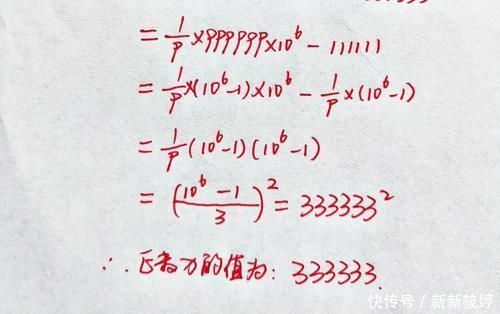 = 1/9 × 999999×10⁶ - 111111
= 1/9 ×(10⁶-1)×10⁶ - 1/9 ×(10⁶-1)
= 1/9 (10⁶-1)(10⁶-1)
= ((10⁶-1)/3)² = 333333²
∴ 正有为的值为: 333333.
快传号 / 新新筱婷